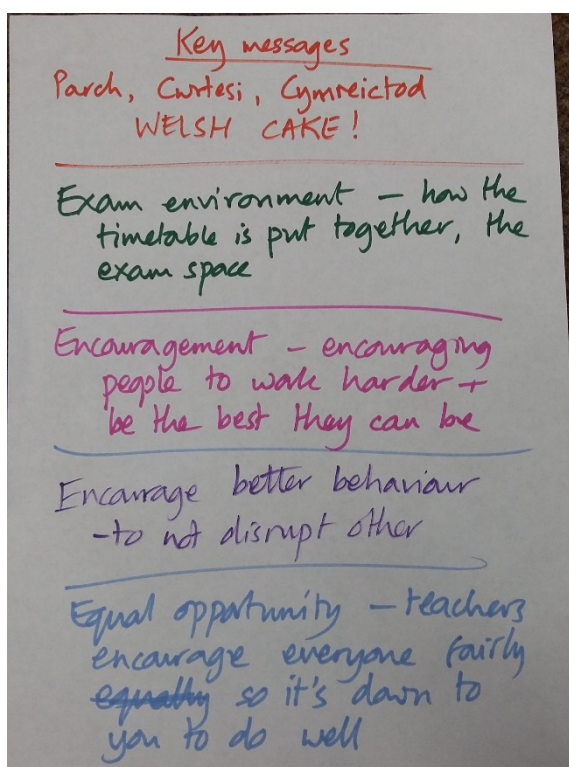 Key messages
Parch, Cwrtesi, Cymreictod
WELSH CAKE!
Exam environment – how the
timetable is put together, the
exam space
Encouragement – encouraging
people to work harder +
be the best they can be
Encourage better behaviour
- to not disrupt other
Equal opportunity – teachers
encourage everyone fairly
equally so it's down to
you to do well